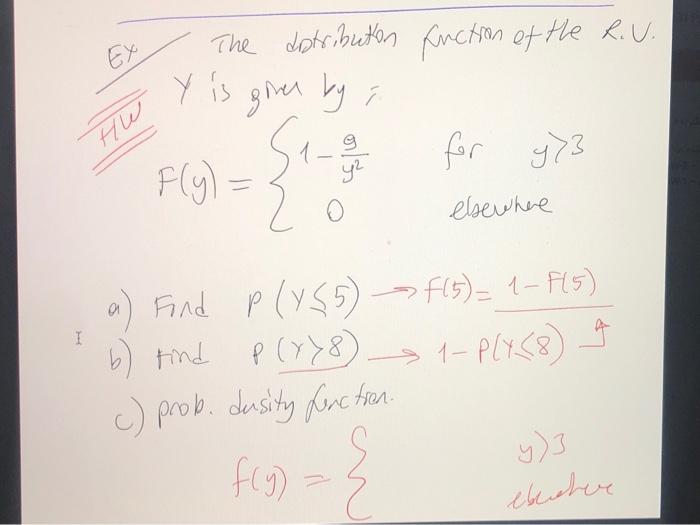 Ex The distribution function of the R.V.
HW Y is given by ;
F(y) = { 1 - 9/y² for y>3
0 elsewhere
a) Find P(Y≤5) → F(5) = 1-F(5)
I
b) Find P(Y>8) → 1-P(Y≤8)
c) prob. dusity function.
f(y) = { y>3
elsewhere